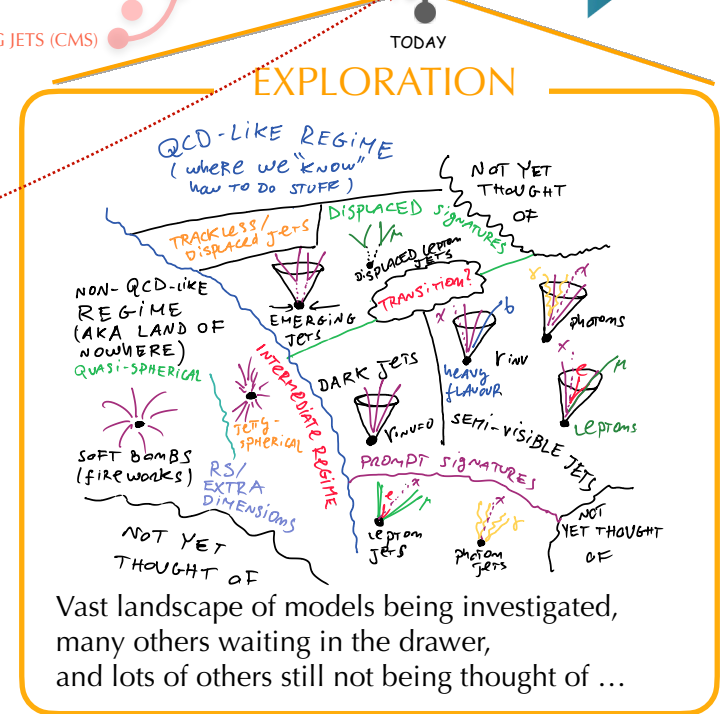 G JETS (CMS)
TODAY
EXPLORATION
QCD-LIKE REGIME
(where we "KNOW"
how TO DO STUFF)
NOT YET
THOUGHT
OF
TRACKLESS/
DISPLACED JETS
DISPLACED SIGNATURES
μ
DISPLACED LEPTON
JETS
TRANSITION?
EMERGING
JETS
NON-QCD-LIKE
REGIME
(AKA LAND OF
NOWHERE)
QUASI-SPHERICAL
INTERMEDIATE REGIME
JETTY-
SPHERICAL
SOFT BOMBS
(fireworks)
RS/
EXTRA
DIMENSIONS
NOT YET
THOUGHT OF
DARK JETS
rINV=0
x
b
rINV
heavy
FLAVOUR
γ
x
photons
x
e
μ
Leptons
SEMI-VISIBLE JETS
PROMPT SIGNATURES
e
x
Lepton
JETS
x
γ
photon
JETS
NOT
YET THOUGHT
OF
Vast landscape of models being investigated,
many others waiting in the drawer,
and lots of others still not being thought of …